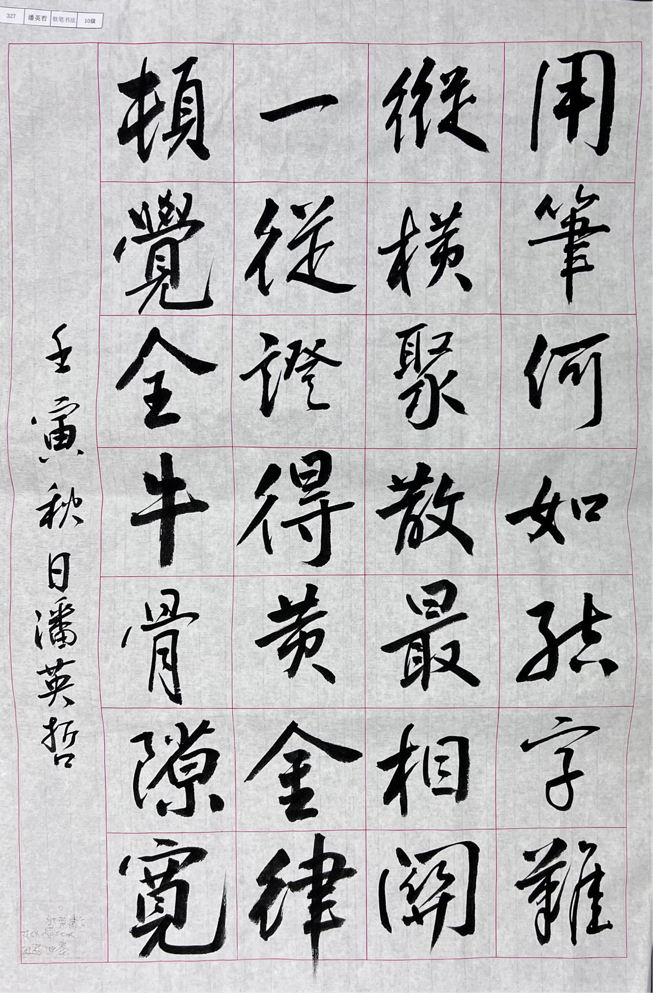 327 潘英哲 软笔书法 10级
用筆何如結字難
縱橫聚散最相關
一從證得黄金律
頓覺全牛骨隙寬
壬寅秋日潘英哲